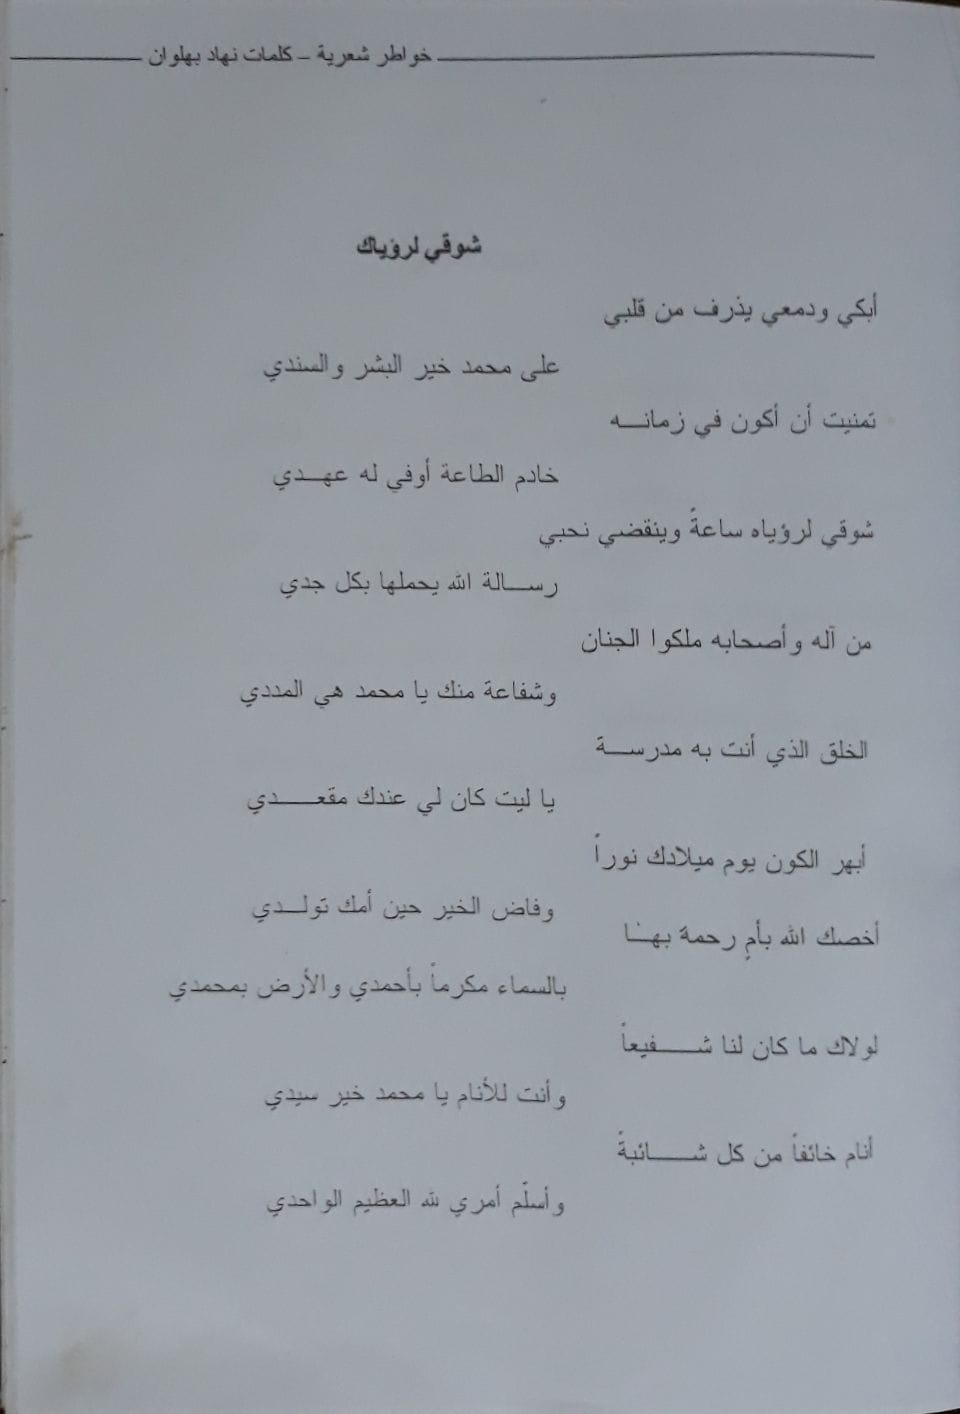 خواطر شعرية – كلمات نهاد بهلوان
شوقي لرؤياك
أبكي ودمعي يذرف من قلبي
على محمد خير البشر والسندي
تمنيت أن أكون في زمانـــه
خادم الطاعة أوفي له عهـــدي
شوقي لرؤياه ساعةً وينقضي نحبي
رســـالة الله يحملها بكل جدي
من آله وأصحابه ملكوا الجنان
وشفاعة منك يا محمد هي المددي
الخلق الذي أنت به مدرســـة
يا ليت كان لي عندك مقعـــــدي
أبهر الكون يوم ميلادك نوراً
وفاض الخير حين أمك تولـــدي
أخصك الله بأمٍ رحمة بهـــا
بالسماء مكرماً بأحمدي والأرض بمحمدي
لولاك ما كان لنا شـــــفيعاً
وأنت للأنام يا محمد خير سيدي
أنام خائفاً من كل شـــــائبةً
وأسلّم أمري لله العظيم الواحدي